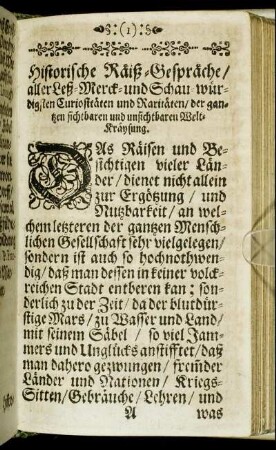 :(1):
Historische Räiß-Gespräche/
aller Leß-Merck- und Schau wür-
digsten Curiositäten und Raritäten/ der gan-
tzen sichtbaren und unsichtbaren Welt-
Kräysung.
DAs Räisen und Be-
sichtigen vieler Län-
der/ dienet nicht allein
zur Ergötzung/ und
Nutzbarkeit/ an wel-
chem letzteren der gantzen Mensch-
lichen Gesellschaft sehr viel gelegen/
sondern ist auch so hochnothwen-
dig/ daß man dessen in keiner volck-
reichen Stadt entberen kan: son-
derlich zu der Zeit/ da der blutdür-
stige Mars/ zu Wasser und Land/
mit seinem Säbel/ so viel Jam-
mers und Unglücks anstifftet/ daß
man dahero gezwungen/ fremder
Länder und Nationen/ Kriegs-
Sitten/ Gebräuche/ Lehren/ und
A was